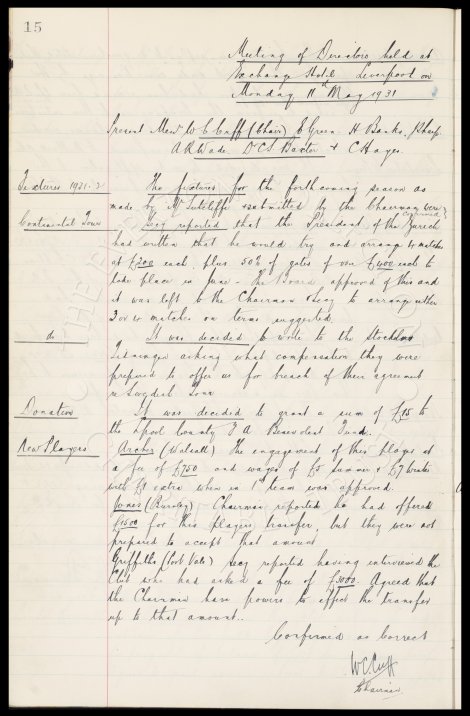 15
Meeting of Directors held at
Exchange Hotel Liverpool on
Monday 11th May 1931
Present Messrs W C Cuff (Chair) E Green H Banks, Sharp
A R Wade Dr C S Baxter & C Hayes.
Fixtures 1931-2 The fixtures for the forthcoming season as
made by Mr Sutcliffe & submitted by the Chairman were
confirmed
Continental Tour Secy reported that the President of the Zurich
had written that he would try and arrange 4 matches
at £200 each plus 50% of gates if over £400 each to
take place in June - The Board approved of this and
it was left to the Chairman & Secy to arrange either
3 or 4 matches on terms suggested.
do It was decided to write to the Stockholm
asking what compensation they were
prepared to offer us for breach of their agreement
re Swedish Tour
Donation It was decided to grant a sum of £15 to
the L'pool County F A Benevolent Fund.
New Players Archer (Walsall) The engagement of this player at
a fee of £750 and wages of £5 summer & £7 winter
with £1 extra when in 1st team was approved.
Jones (Burnley) Chairman reported he had offered
£1500 for this players transfer, but they were not
prepared to accept that amount
Griffiths (Port Vale) Secy reported having interviewed the
Club who had asked a fee of £3000 Agreed that
the Chairman have powers to effect the transfer
up to that amount..
Confirmed as Correct
W C Cuff
Chairman